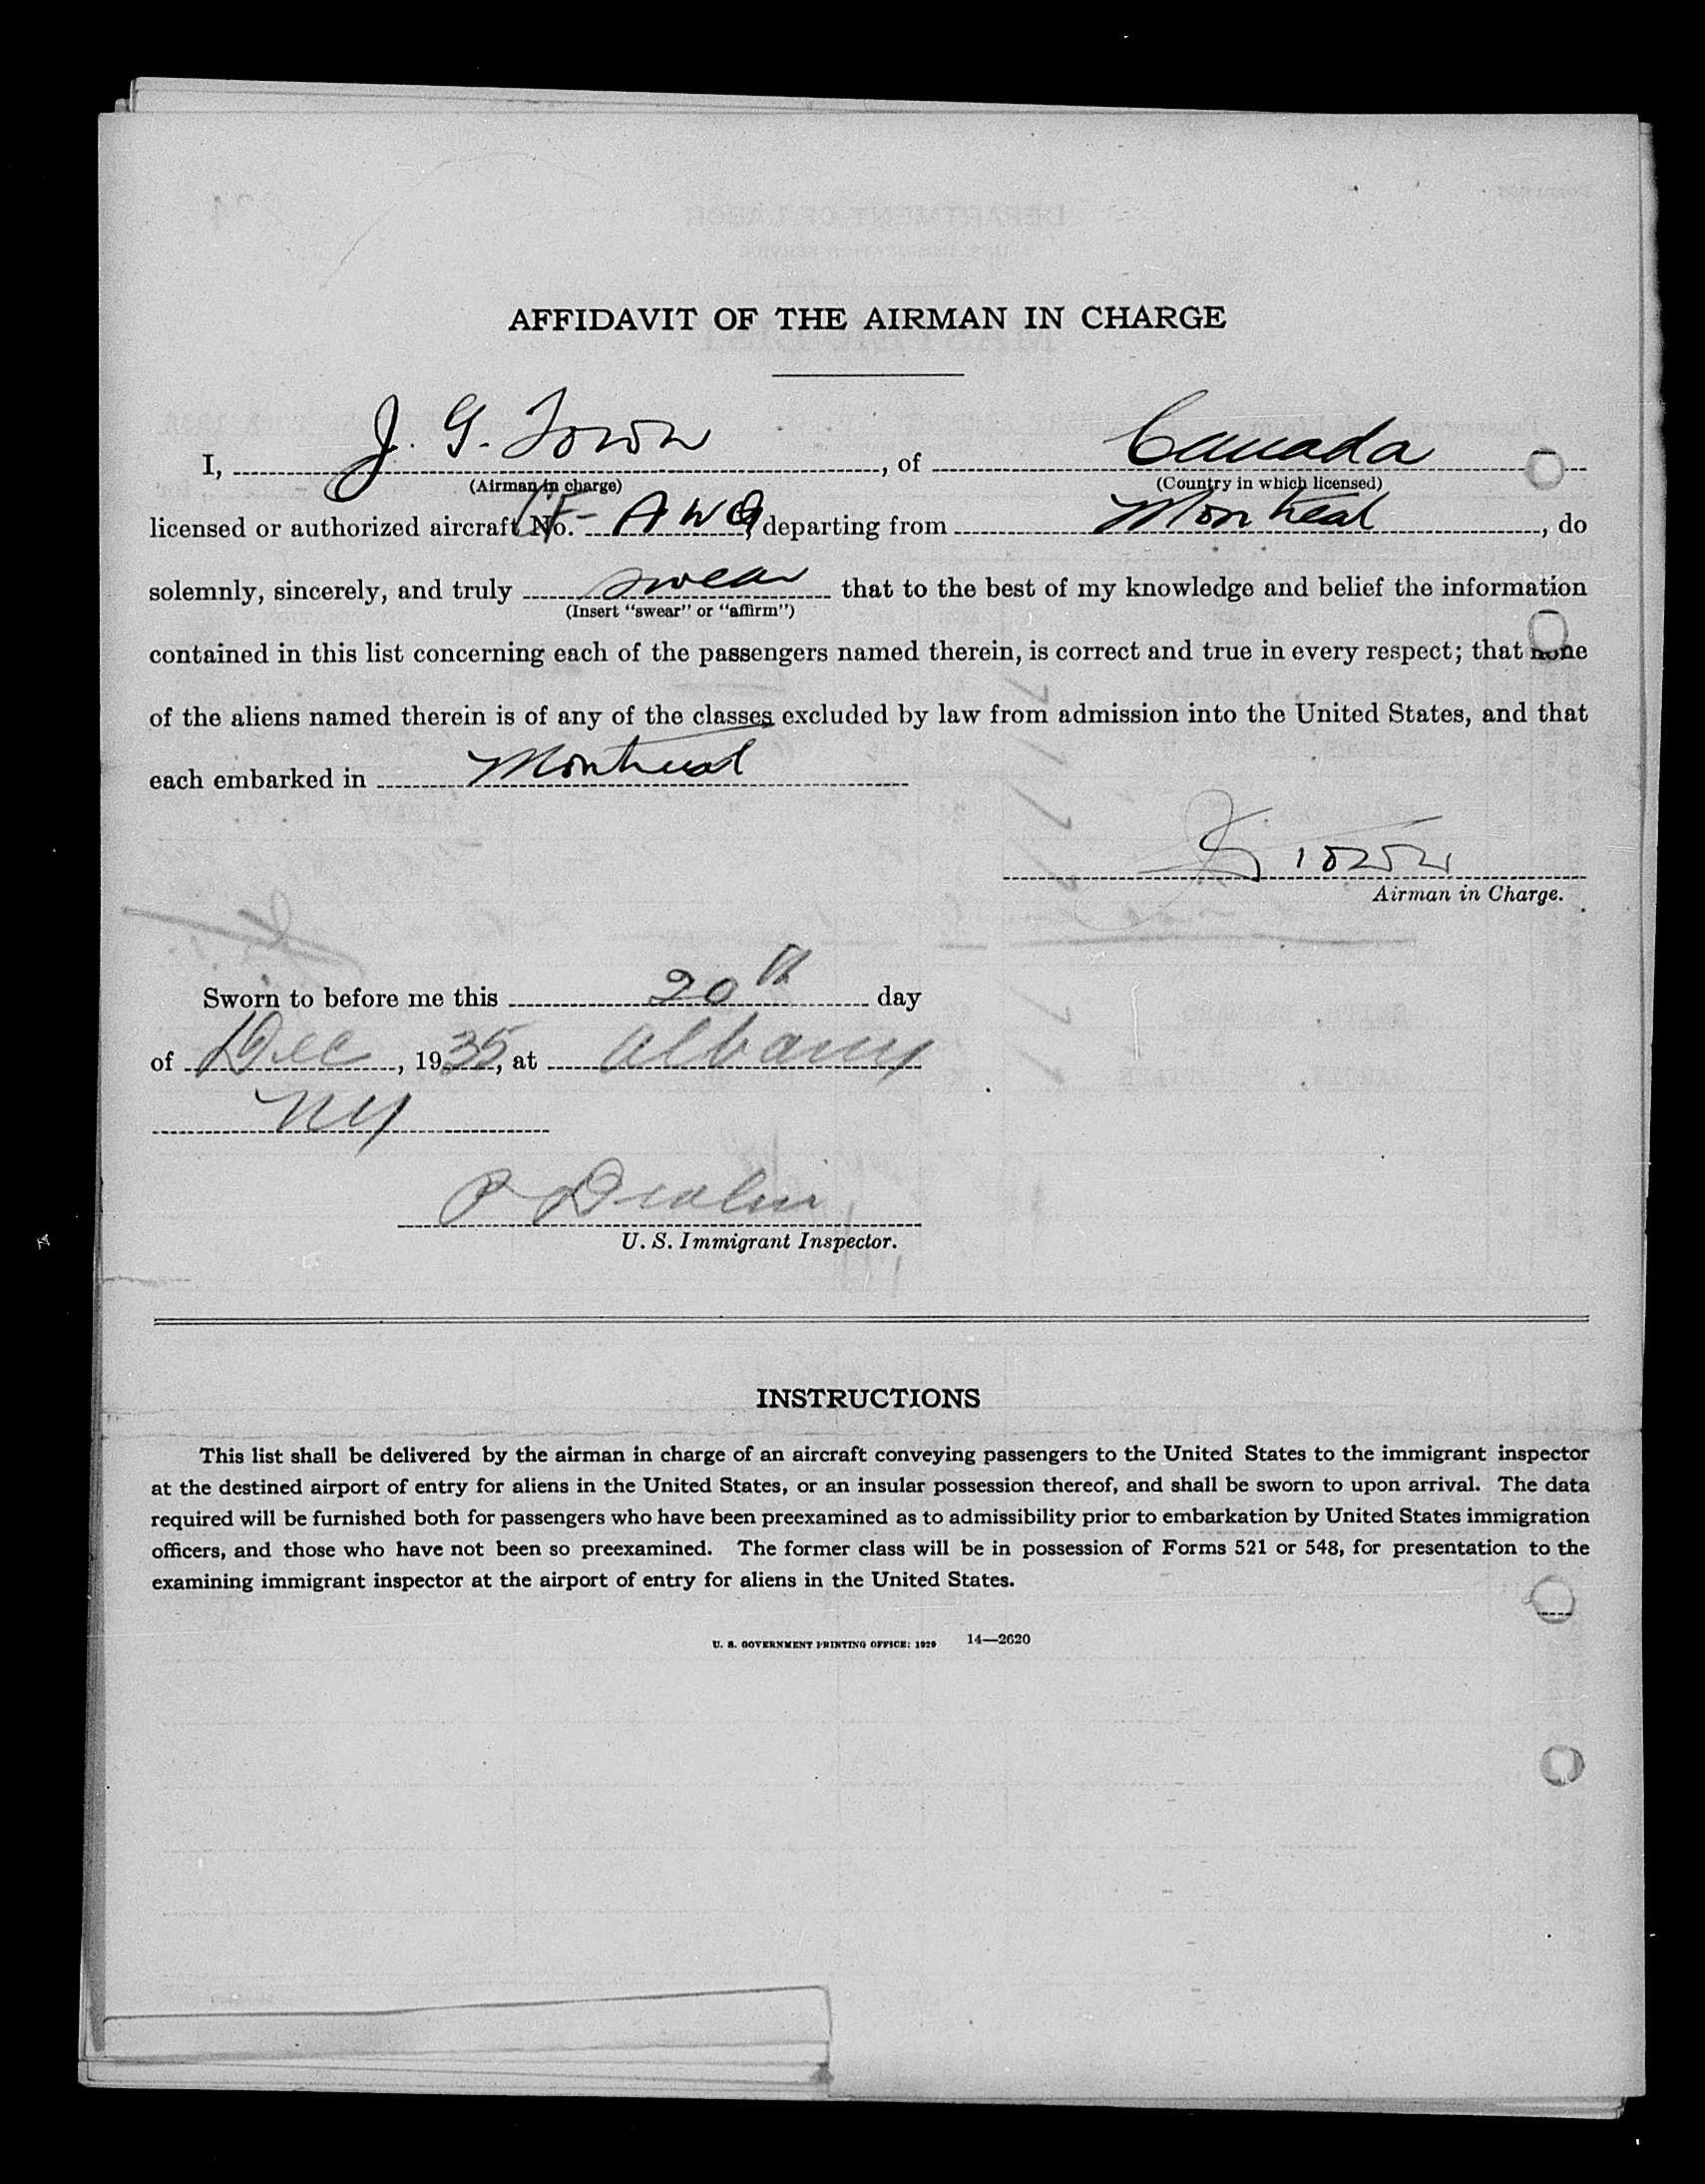 AFFIDAVIT OF THE AIRMAN IN CHARGE
I, J. G. Town, of Canada
(Airman in charge) (Country in which licensed)
licensed or authorized aircraft No. CF- AWG, departing from Montreal, do
solemnly, sincerely, and truly swear that to the best of my knowledge and belief the information
(Insert "swear" or "affirm")
contained in this list concerning each of the passengers named therein, is correct and true in every respect; that none
of the aliens named therein is of any of the classes excluded by law from admission into the United States, and that
each embarked in Montreal
Town
Airman in Charge.
Sworn to before me this 20th day
of Dec, 1935, at Albany
NY
U. S. Immigrant Inspector.
INSTRUCTIONS
This list shall be delivered by the airman in charge of an aircraft conveying passengers to the United States to the immigrant inspector
at the destined airport of entry for aliens in the United States, or an insular possession thereof, and shall be sworn to upon arrival. The data
required will be furnished both for passengers who have been preexamined as to admissibility prior to embarkation by United States immigration
officers, and those who have not been so preexamined. The former class will be in possession of Forms 521 or 548, for presentation to the
examining immigrant inspector at the airport of entry for aliens in the United States.
U. S. GOVERNMENT PRINTING OFFICE: 1929 14—2620